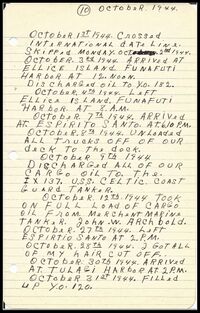 10 OCTOBER. 1944.
OCTOBER 1ST 1944. CROSSED
INTERNATIONAL DATE LINE.
SKIPPED MONDAY. OCT 2ND 1944.
OCTOBER. 3RD 1944. ARRIVED AT
ELLICE ISLAND FUNAFUTI
HARBOR AT 12. NOON.
DISCHARGED OIL TO YO. 182.
OCTOBER. 4TH 1944. LEFT
ELLICE ISLAND, FUNAFUTI
HARBOR. AT 8. A.M.
OCTOBER 7TH 1944. ARRIVED
AT ESPIRITO SANTO. AT 6.00 P.M.
OCTOBER. 8TH 1944. UNLOADED
ALL TRUCKS OFF OF OUR
DECK TO THE DOCK.
OCTOBER 9TH 1944
DISCHARGED ALL OF OUR
CARGO OIL TO. THE.
IX 137. USS. CELTIC. COAST
GUARD TANKER.
OCTOBER. 12TH 1944. TOOK
ON FULL LOAD OF CARGO
OIL FROM MERCHANT MARINE
TANKER. JOHN W. ARCHBOLD.
OCTOBER 27TH 1944. LEFT
ESPIRTIO SANTO AT 2. P.M.
OCTOBER. 28TH 1944. I GOT ALL
OF MY HAIR CUT OFF.
OCTOBER 30TH 1944. ARRIVED
AT TULAGI HARBOR AT 2 P.M.
OCTOBER. 31ST 1944. FILLED
UP YO. 120.